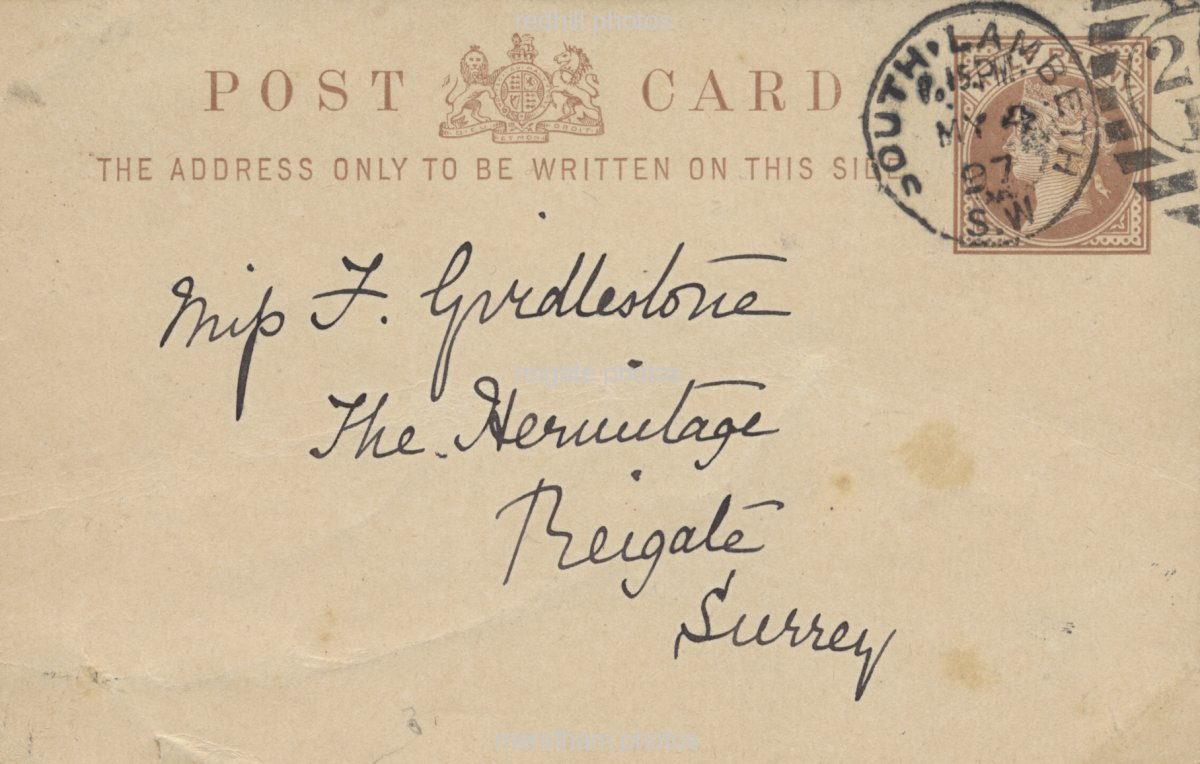 redhill.photos
POST CARD
THE ADDRESS ONLY TO BE WRITTEN ON THIS SIDE
SOUTH·LAMBETH
8.15 PM
MY 4
97
S.W
2
Miss F. Girdlestone
reigate.photos
The Hermitage
Reigate
Surrey
merstham.photos